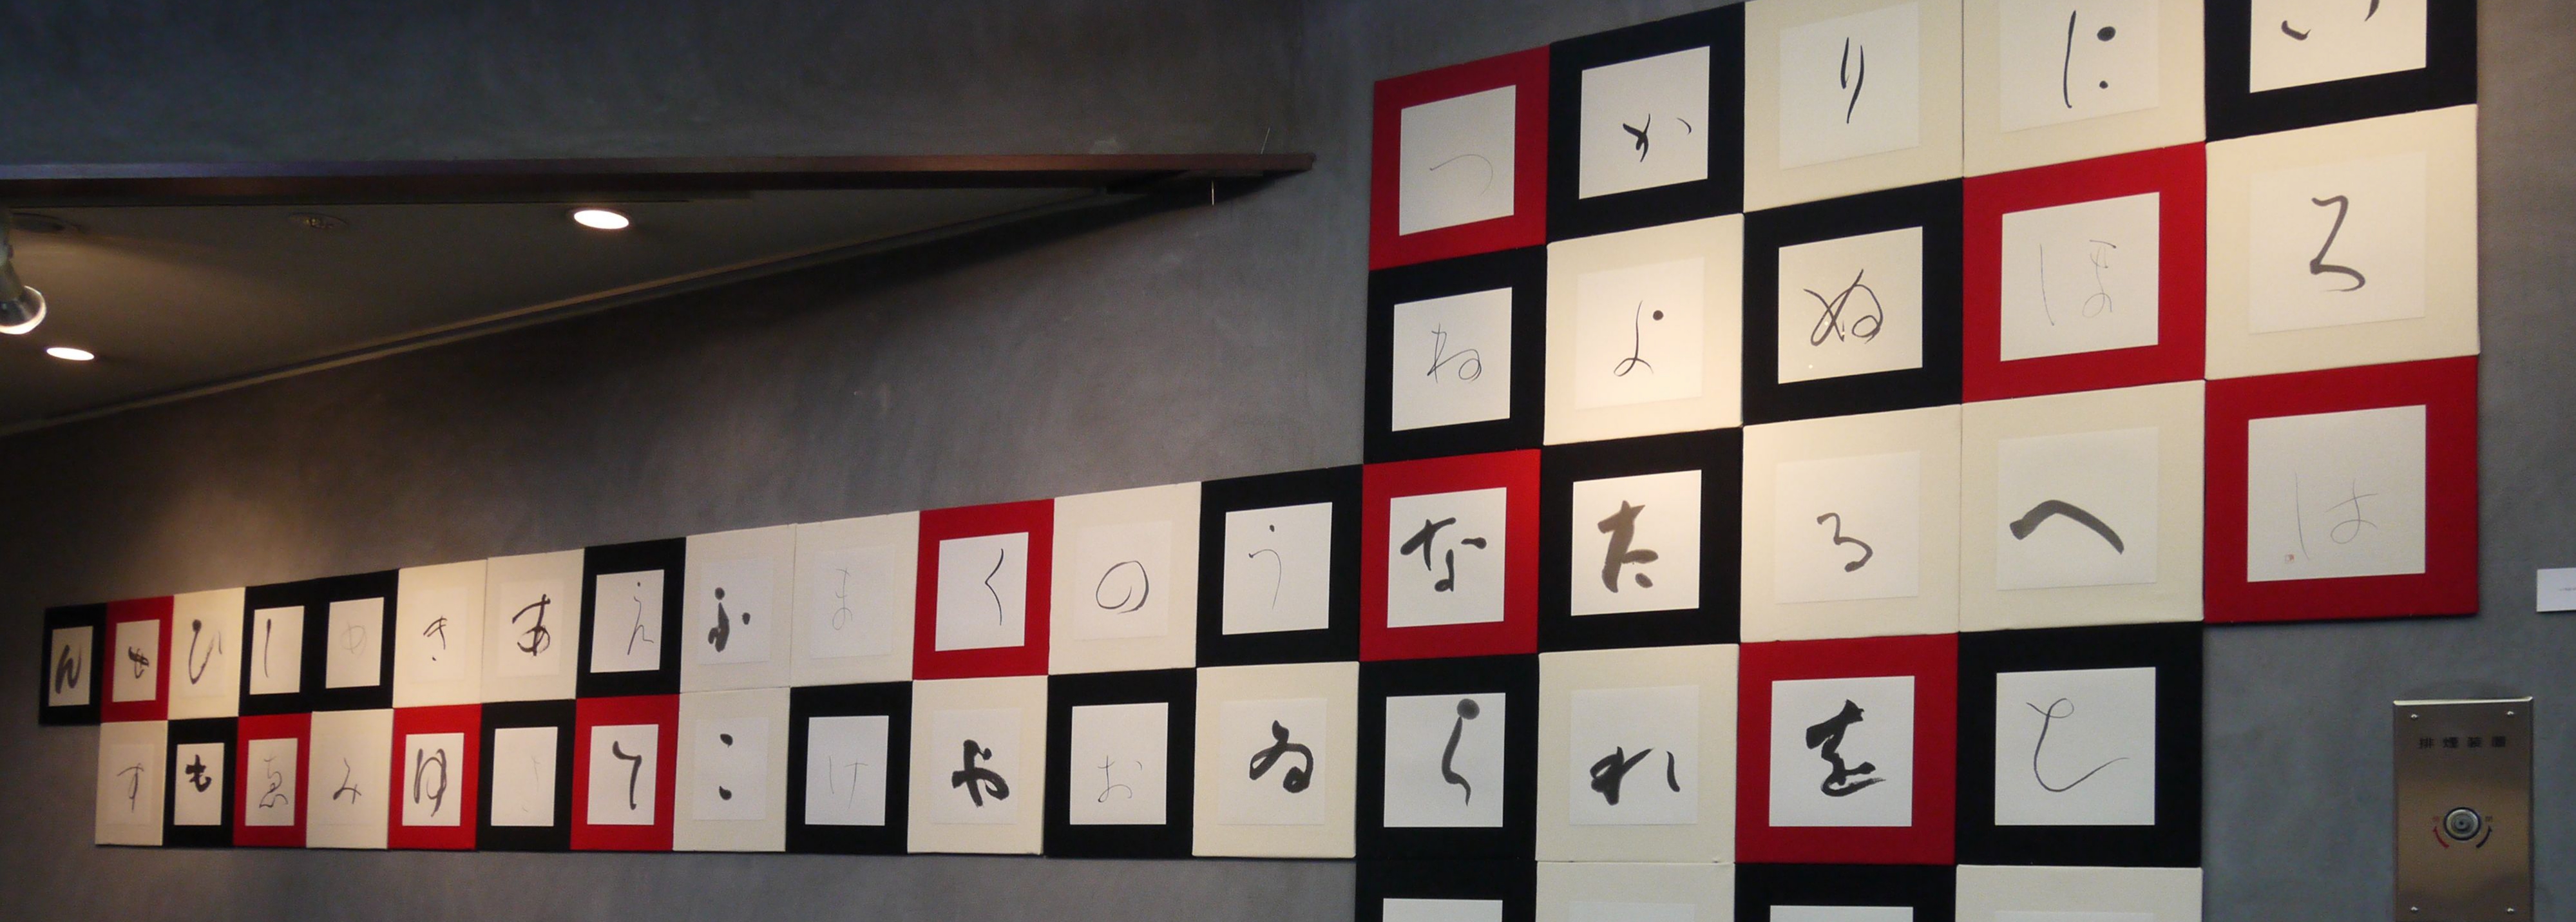 いろは
にほへと
りぬるを
かよたれ
つねなら
うゐ
のお
くや
まけ
ふこ
えて
あさ
きゆ
めみ
しゑ
ひも
せす
ん
排煙装置